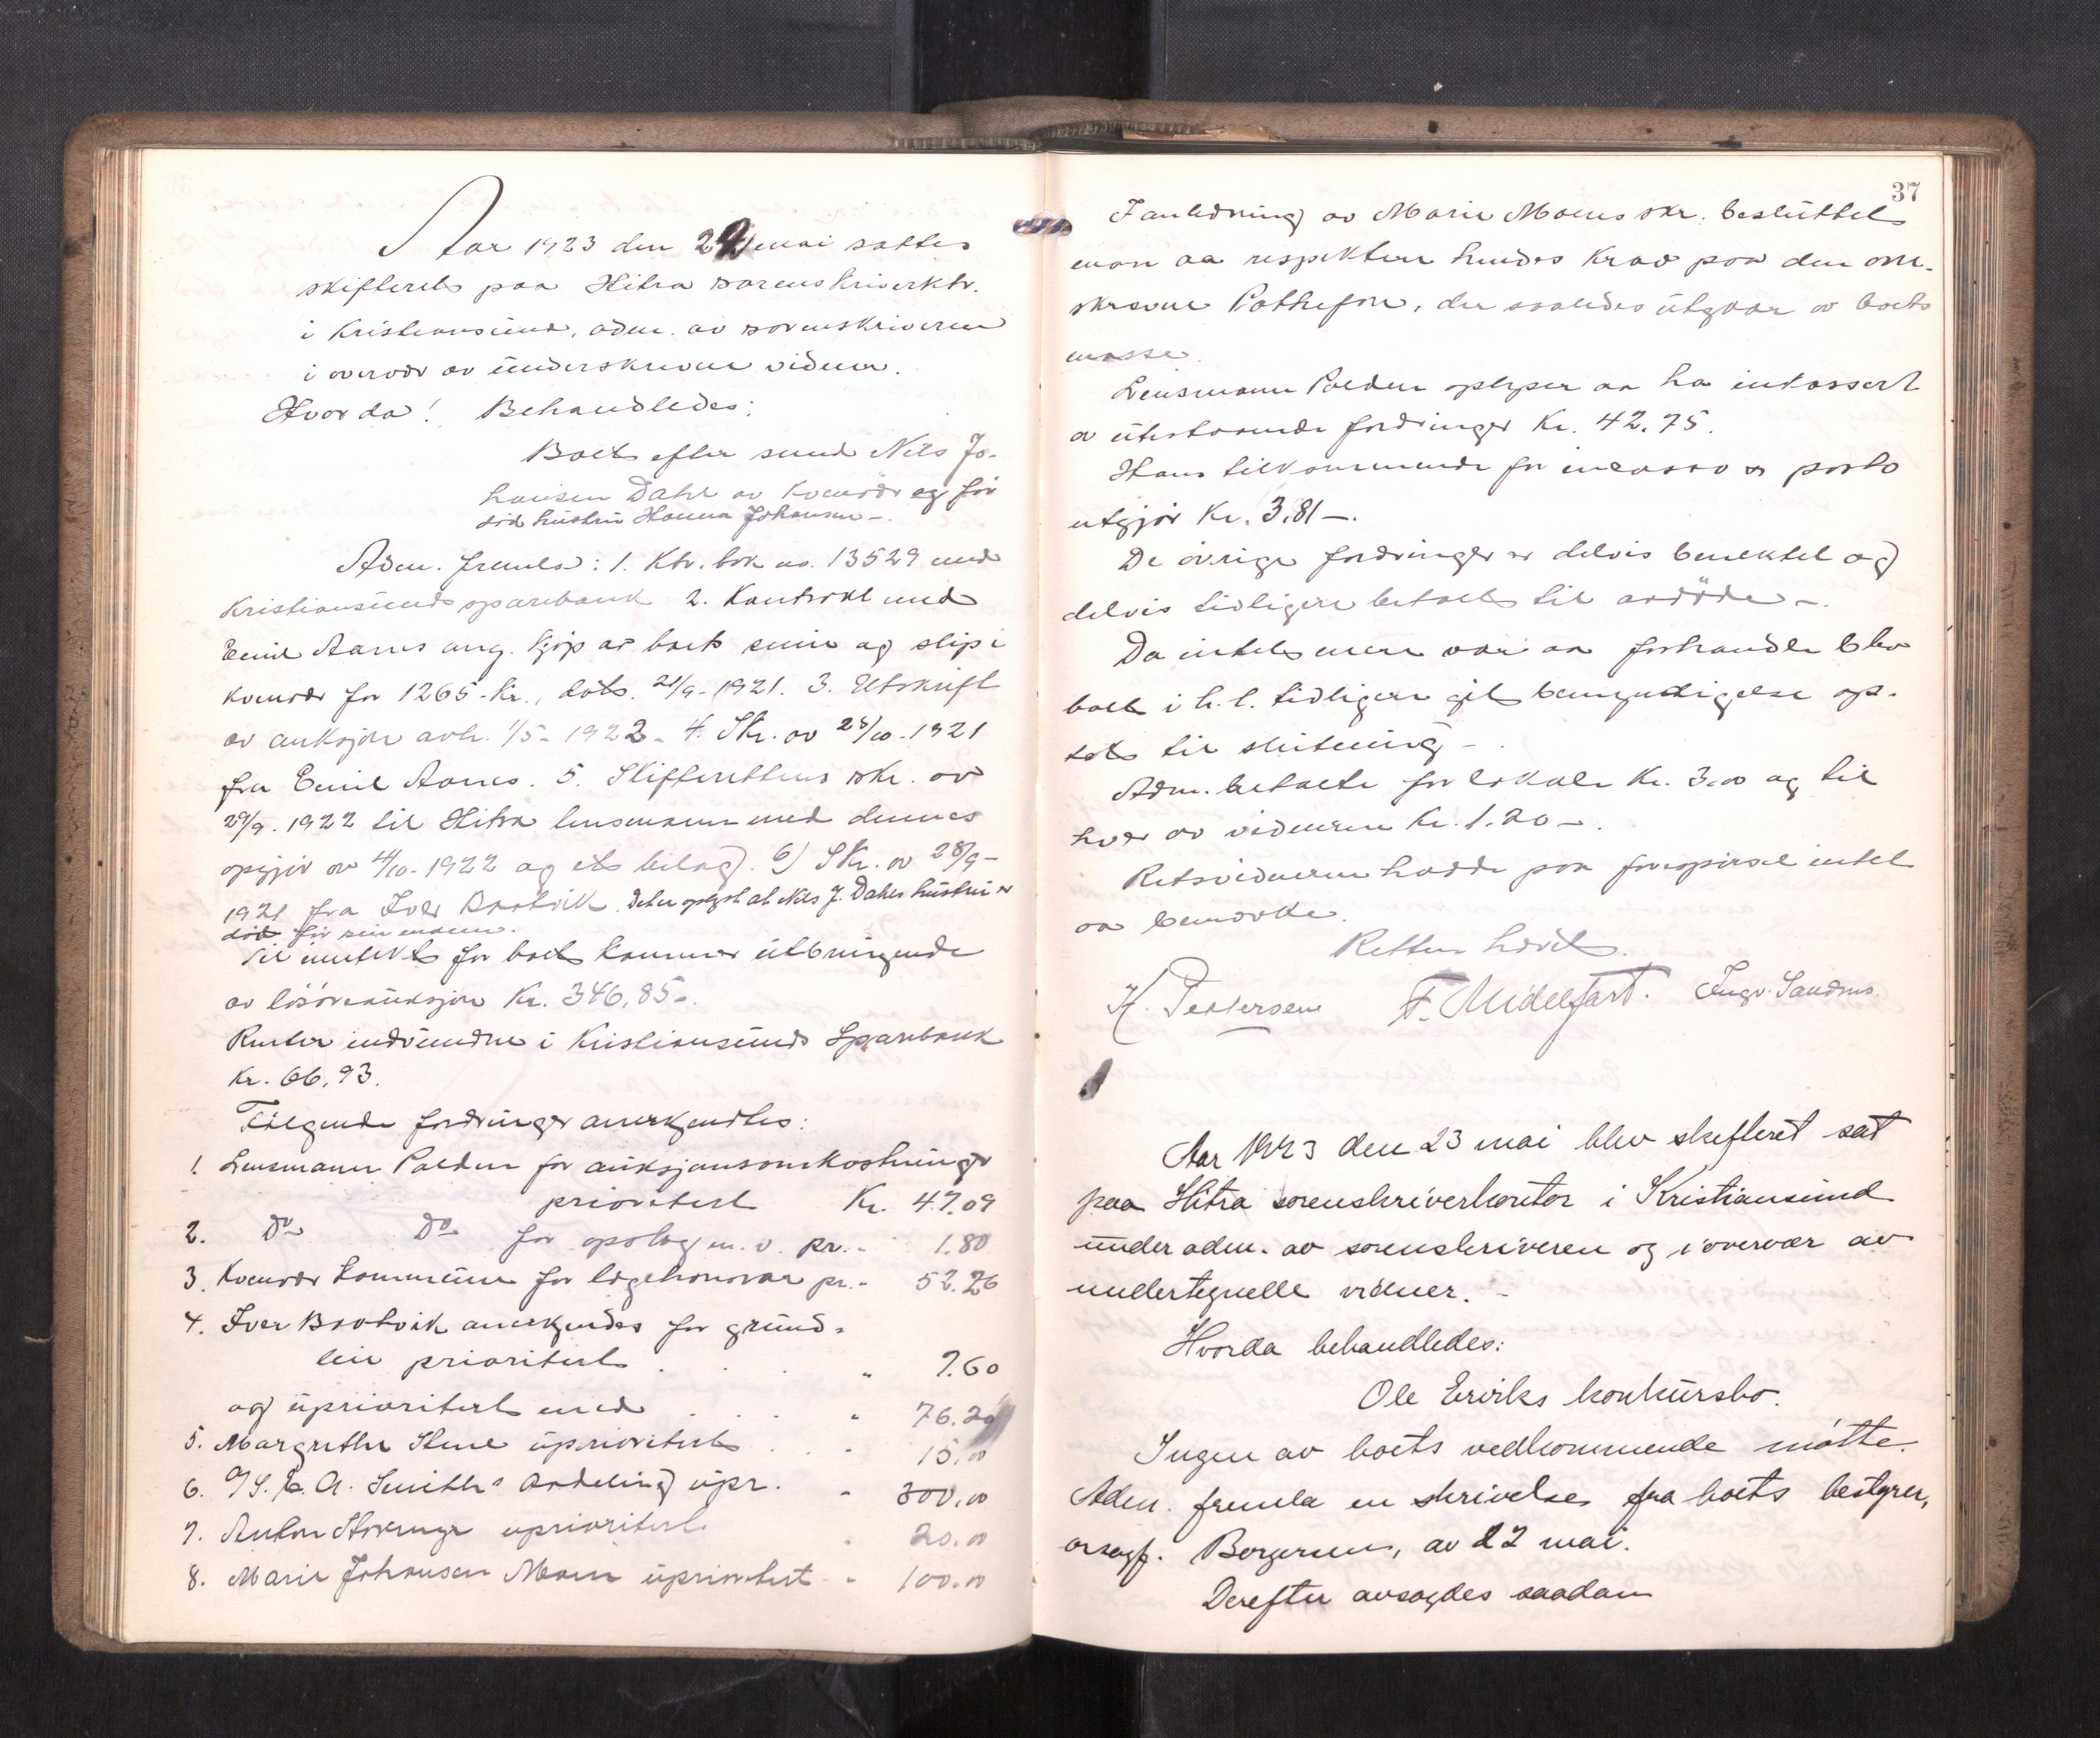 Aar 1923 den 22 mai sattes
skifteret paa Hitra sorenskriverktr.
i Kristiansund, adm. av sorenskriveren
i overvær av underskrevne vidner.
Hvorda! Behandledes:
Boet efter smed Nils Jo-
hansen Dahl av Kvenvær og før
død hustru Hanna Johansen –.
Adm. fremla: 1. Ktr. bok no. 13529 med
Kristiansunds sparebank 2. Kontrakt med
Emil Aarnes ang. kjøp av boets smie og slip i
Kvenvær for 1265 - Kr., dat. 21/9 - 1921. 3. Utskrift
av auksjon avh. 1/5 - 1922 - 4. Skr. av 25/10 - 1921
fra Emil Aarnes. 5. Skifterettens skr. av
29/9 - 1922 til Hitra lensmann med dennes
opgjør av 4/10 - 1922 og et bilag). 6) Skr. av 28/9 -
1921 fra Iver Bratvik. Det er oplyst at Nils J. Dahls hustru er
død før sin mand.
Til inntekt for boet kommer utbringende
av løsøreauksjon Kr. 346,85 -.
Renter indvundne i Kristiansunds Sparebank
Kr. 66,93.
Følgende fordringer anerkjendtes:
1. Lensmann Palden for auksjonsomkostninger
prioritert Kr. 47.09
2. Do Do for opslag m. v. pr. - 1.80
3. Kvenvær kommune for lægehonorar pr. - 52.26
4. Iver Bratvik anerkjendes for grund-
leie prioritert . . . " 7.60
og uprioritert med . . . " 76.20
5. Margrethe Stene uprioritert . . " 15,00
6. A/S. E. A. Smiths avdeling upr. " 300,00
7. Anton uprioritert " 20.00
8. Marie Johansen Moen uprioritert - " 100.00
37
I anledning av Marie Moens skr. besluttet
man aa respektere hendes krav paa den om-
skrevne , der saaledes utgaar av boets
masse.
Lensmann Palden oplyser aa ha inkassert
av utestaaende fordringer Kr. 42.75.
Hans tilkommende for inkasso og porto
utgjør Kr. 3.81 –.
De øvrige fordringer er delvis benektet og
delvis tidligere betalt til avdøde –.
Da intet mere var aa forhandle blev
boet i h. t. tidligere git bemyndigelse op-
tat til slutning –.
Adm. betalte for lokale Kr. 3.00 og til
hver av vidnerne Kr. 1.20 –.
Retsvidnerne hadde paa forespørsel intet
aa bemerke.
Retten hævet.
H. Pettersen F. Midelfart. Ingv. Sandnes.
Aar 1923 den 23 mai blev skifteret sat
paa Hitra sorenskriverkontor i Kristiansund
under adm. av sorenskriveren og i overvær av
undertegnede vidner. –
Hvorda behandledes:
Ole Erviks konkursbo.
Ingen av boets vedkommende møtte.
Adm. fremla en skrivelse fra boets bestyrer,
o.r.sagf. Borgersen, av 22 mai.
Derefter avsagdes saadan